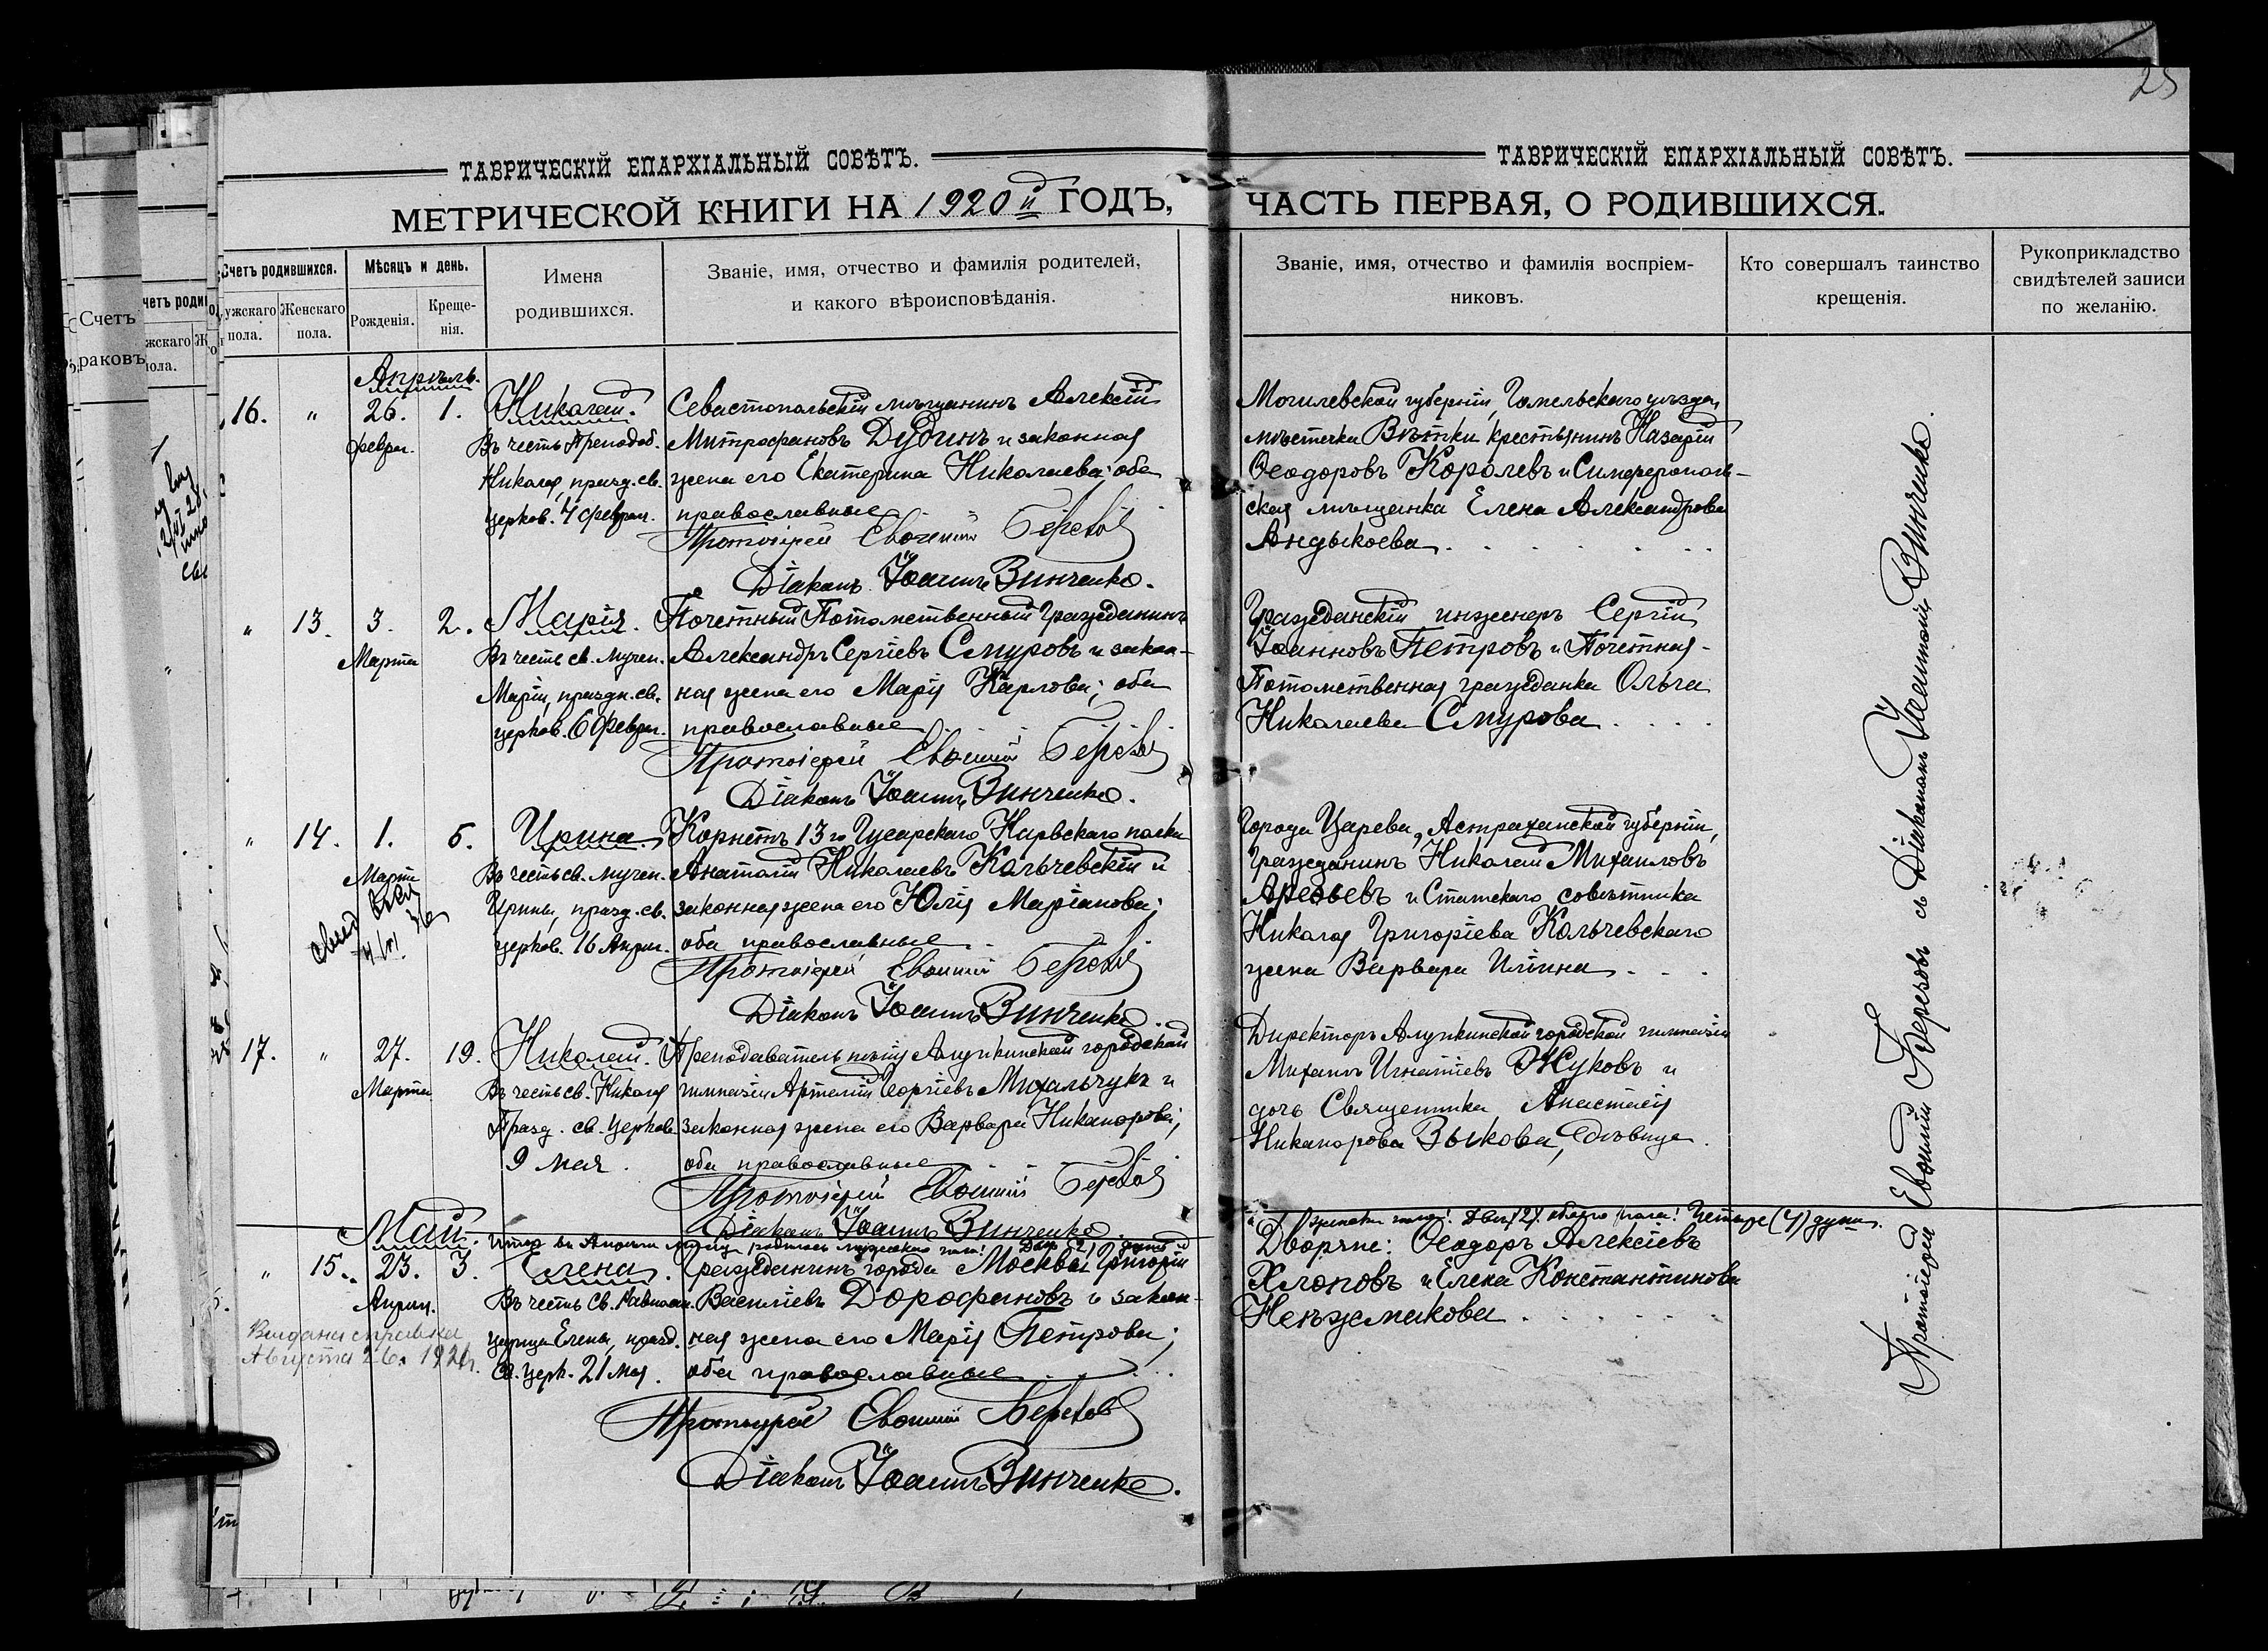 25
ТАВРИЧЕСКІЙ ЕПАРХІАЛЬНЫЙ СОВѢТЪ.
МЕТРИЧЕСКОЙ КНИГИ НА 1920й ГОДЪ,
Счетъ родившихся.
Мужскаго пола.
Женскаго пола.
Мѣсяцъ и день.
Рожденія.
Креще-
нія.
Имена
родившихся.
Званіе, имя, отчество и фамилія родителей,
и какого вѣроисповѣданія.
ТАВРИЧЕСКІЙ ЕПАРХІАЛЬНЫЙ СОВѢТЪ.
ЧАСТЬ ПЕРВАЯ, О РОДИВШИХСЯ.
Званіе, имя, отчество и фамилія воспріем-
никовъ.
Кто совершалъ таинство
крещенія.
Рукоприкладство
свидѣтелей записи
по желанію.
Апрѣль.
16. " 26. феврал. 1.
Николай.
Въ честь Преподоб.
Николая, празд. св.
церков. 4 феврал.
Севастопольскій мѣщанинъ Алексій
Митрофановъ Дудинъ и законная
жена его Екатерина Николаева; оба
православные
Протоіерей Евѳимій Березовъ
Діаконъ Іоаннъ Винченко.
Могилевской губерніи, Гомельскаго уѣзда,
мѣстечка Вѣтки крестьянинъ Назарій
Ѳеодоровъ Королевъ и Симферополь-
ская мѣщанка Елена Александрова
Андыкоева.
" 13. 3. Марта 2.
Марія.
Въ честь св. мучен.
Маріи, праздн. св.
церков. 6 феврал.
Почетный Потомственный Гражданинъ
Александръ Сергіевъ Смуровъ и закон-
ная жена его Марія Карлова; оба
православные
Протоіерей Евѳимій Березовъ
Діаконъ Іоаннъ Винченко.
Гражданскій инженеръ Сергій
Іоанновъ Петровъ и Почетная-
Потомственная гражданка Ольга
Николаева Смурова
" 14. 1. Марта 5.
Ирина.
Въ честь св. мучен.
Ирины, празд. св.
церков. 16 Април.
Корнетъ 13го Гусарскаго Нарвскаго полка
Анатолій Николаевъ Кольчевскій и
законная жена его Юлія Маріанова;
оба православные
Протоіерей Евѳимій Березовъ
Діаконъ Іоаннъ Винченко.
Города Царева, Астраханской губерніи,
гражданинъ Николай Михаиловъ
Арефьевъ и Статскаго совѣтника
Николая Григоріева Кольчевскаго
жена Варвара Иліина
17. " 27. Марта 19.
Николай.
Въ честь св. Николая
Празд. св. Церков.
9 мая.
Преподаватель пѣнія Алупкинской городской
гимназіи Артемій Георгіевъ Михальчукъ и
законная жена его Варвара Никанорова;
оба православные
Протоіерей Евѳимій Березовъ
Діаконъ Іоаннъ Винченко
Директоръ Алупкинской городской гимназіи
Михаилъ Игнатіевъ Жуковъ и
дочь Священника Анастасія
Никанорова Зыкова, дѣвица.
Итого въ Апрѣлѣ мѣсяцѣ родилось мужескаго пола! Два (2)
женска пола! Два (2). обоего пола! Четыре (4) душ.
Май.
" 15. 23. Април. 3.
Елена.
Въ честь Св. Равноап.
царицы Елены, празд.
Св. церк. 21 мая.
Гражданинъ города Москвы Григорій
Василіевъ Дорофановъ и закон-
ная жена его Марія Петрова;
оба православные
Протоіерей Евѳимій Березовъ
Діаконъ Іоаннъ Винченко.
Дворяне: Ѳеодоръ Алексіевъ
Хлоповъ и Елена Константинова
Ненжмакова
Выдана справка
Августа 26. 192
Протоіерей Евѳимій Березовъ съ Діакономъ Іоанномъ Винченко.